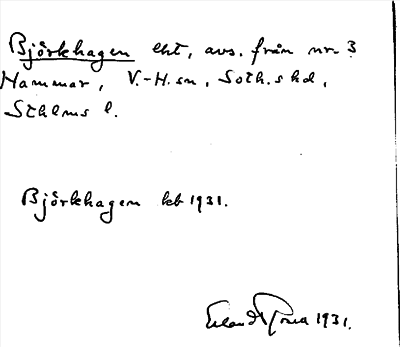 Björkhagen lht, avs. från nr 3
Hammar, V.-H. sn, Soth. shd,
Sthlms l.
Björkhagen kb 1931.
Erland Rosa 1931.